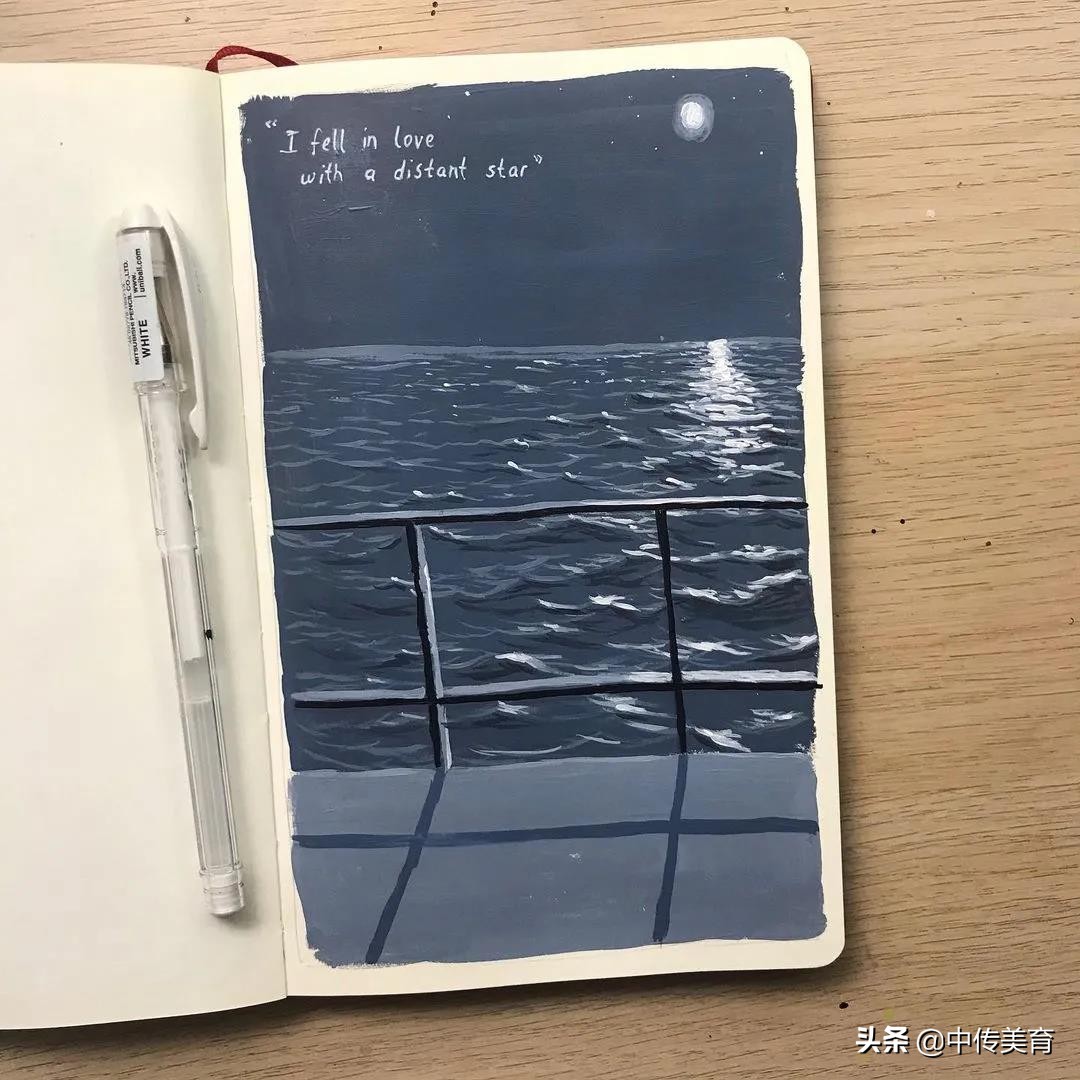 “I fell in love
with a distant star”
MITSUBISHI PENCIL CO.,LTD.
www.
uniball.com
WHITE
头条 @中传美育